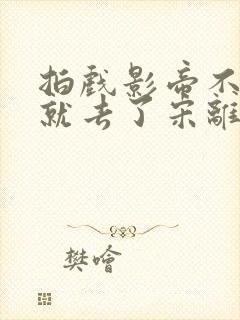 拍戲影帝不
就去了宋離
樊噲